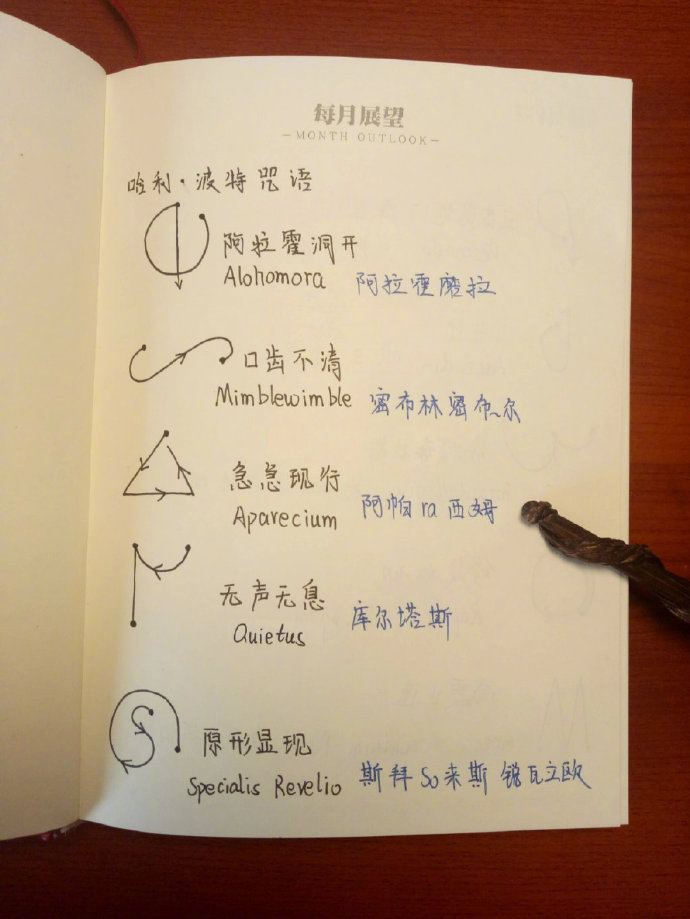 每月展望
MONTH OUTLOOK
哈利·波特咒语
阿拉霍洞开
Alohomora 阿拉霍磨拉
口齿不清
Mimblewimble 密布林密布尔
急急现行
Aparecium 阿帕ra西姆
无声无息
Quietus 库尔塔斯
原形显现
Specialis Revelio 斯拜So来斯 锐瓦立欧